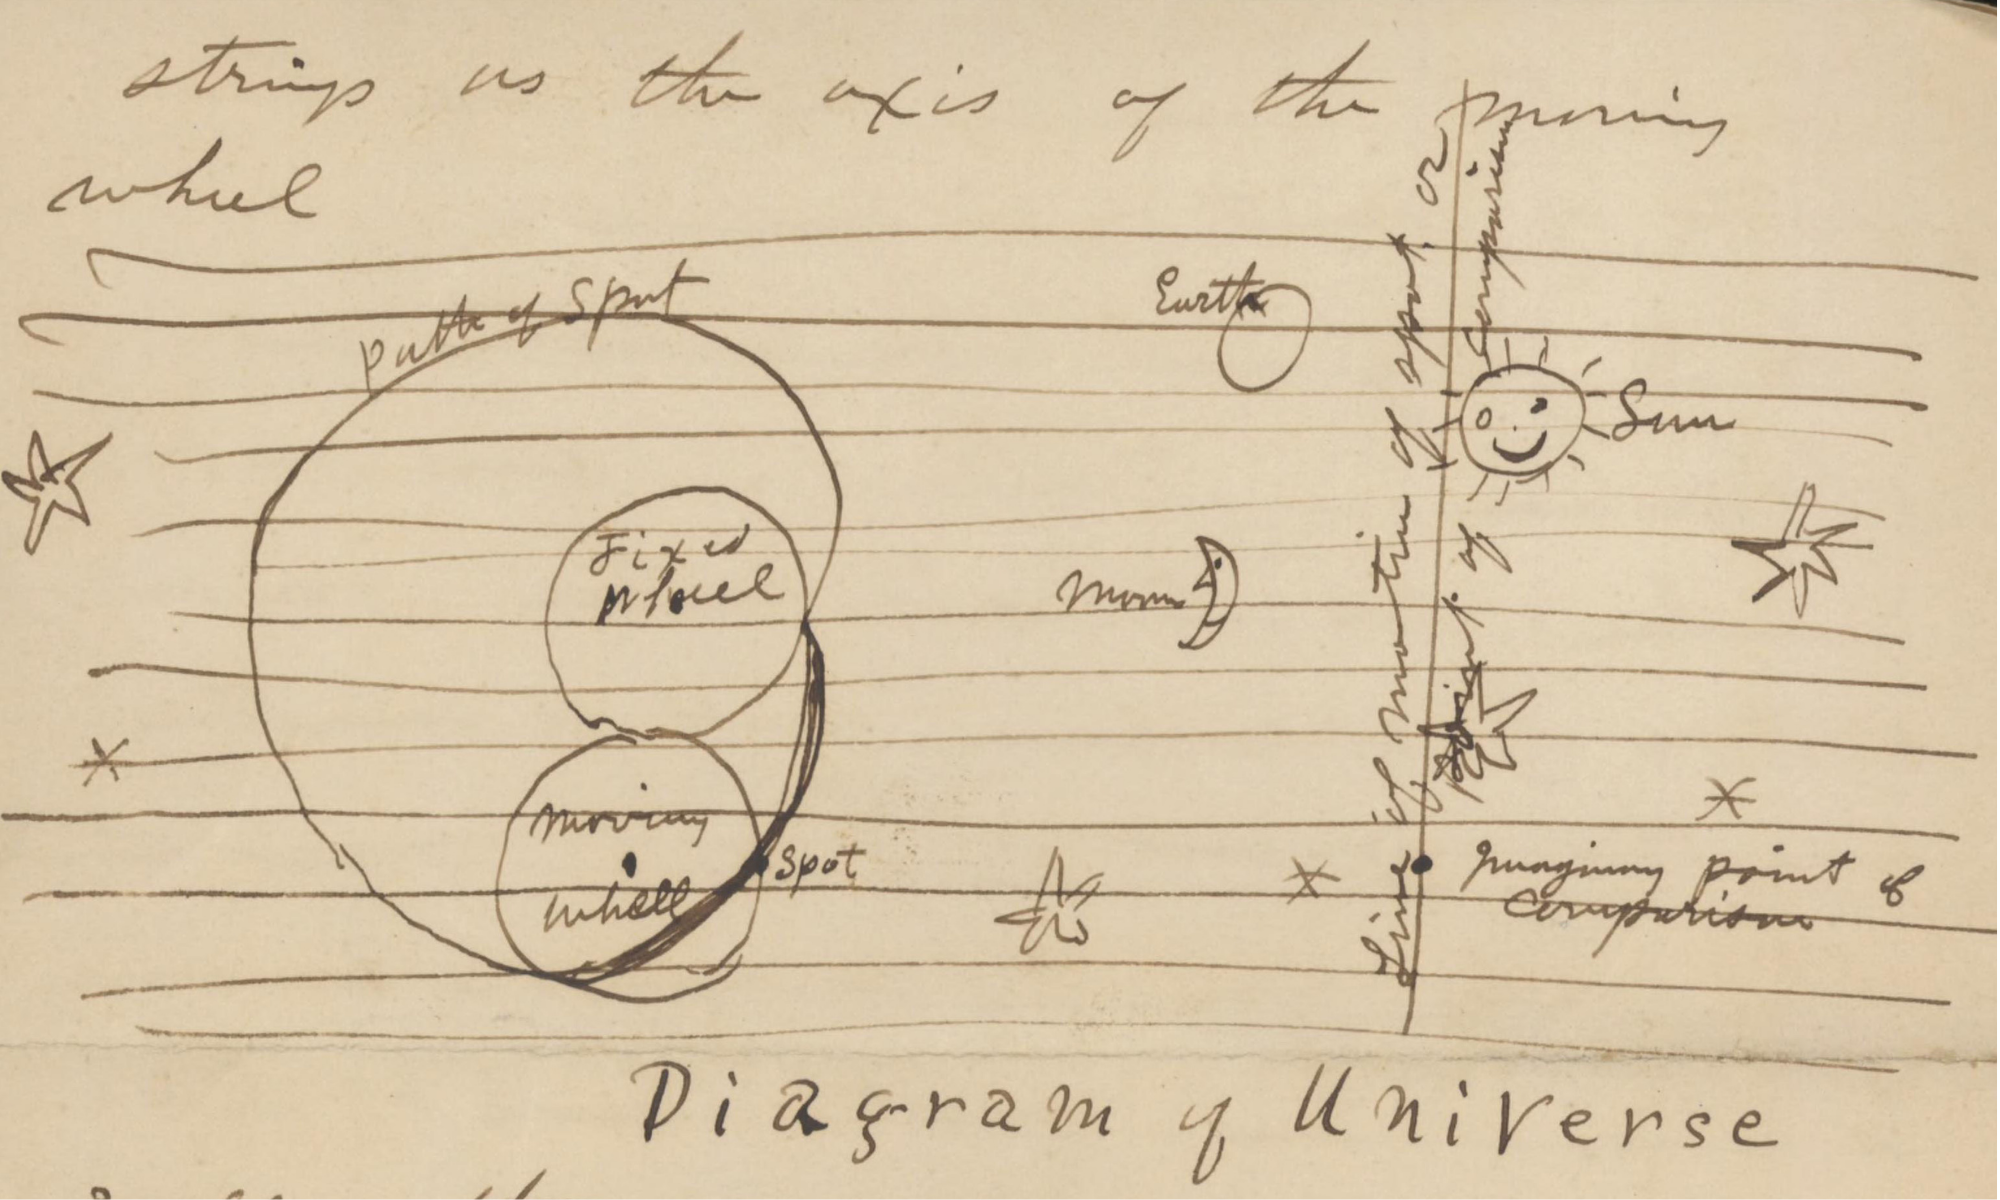 strings as the axis of the moving
wheel
path of Spot
Earth
Sun
Fixed
wheel
Moon
moving
whell
Spot
Line of motion of spot or
point of comparison
Imaginary point of
comparison
Diagram of Universe